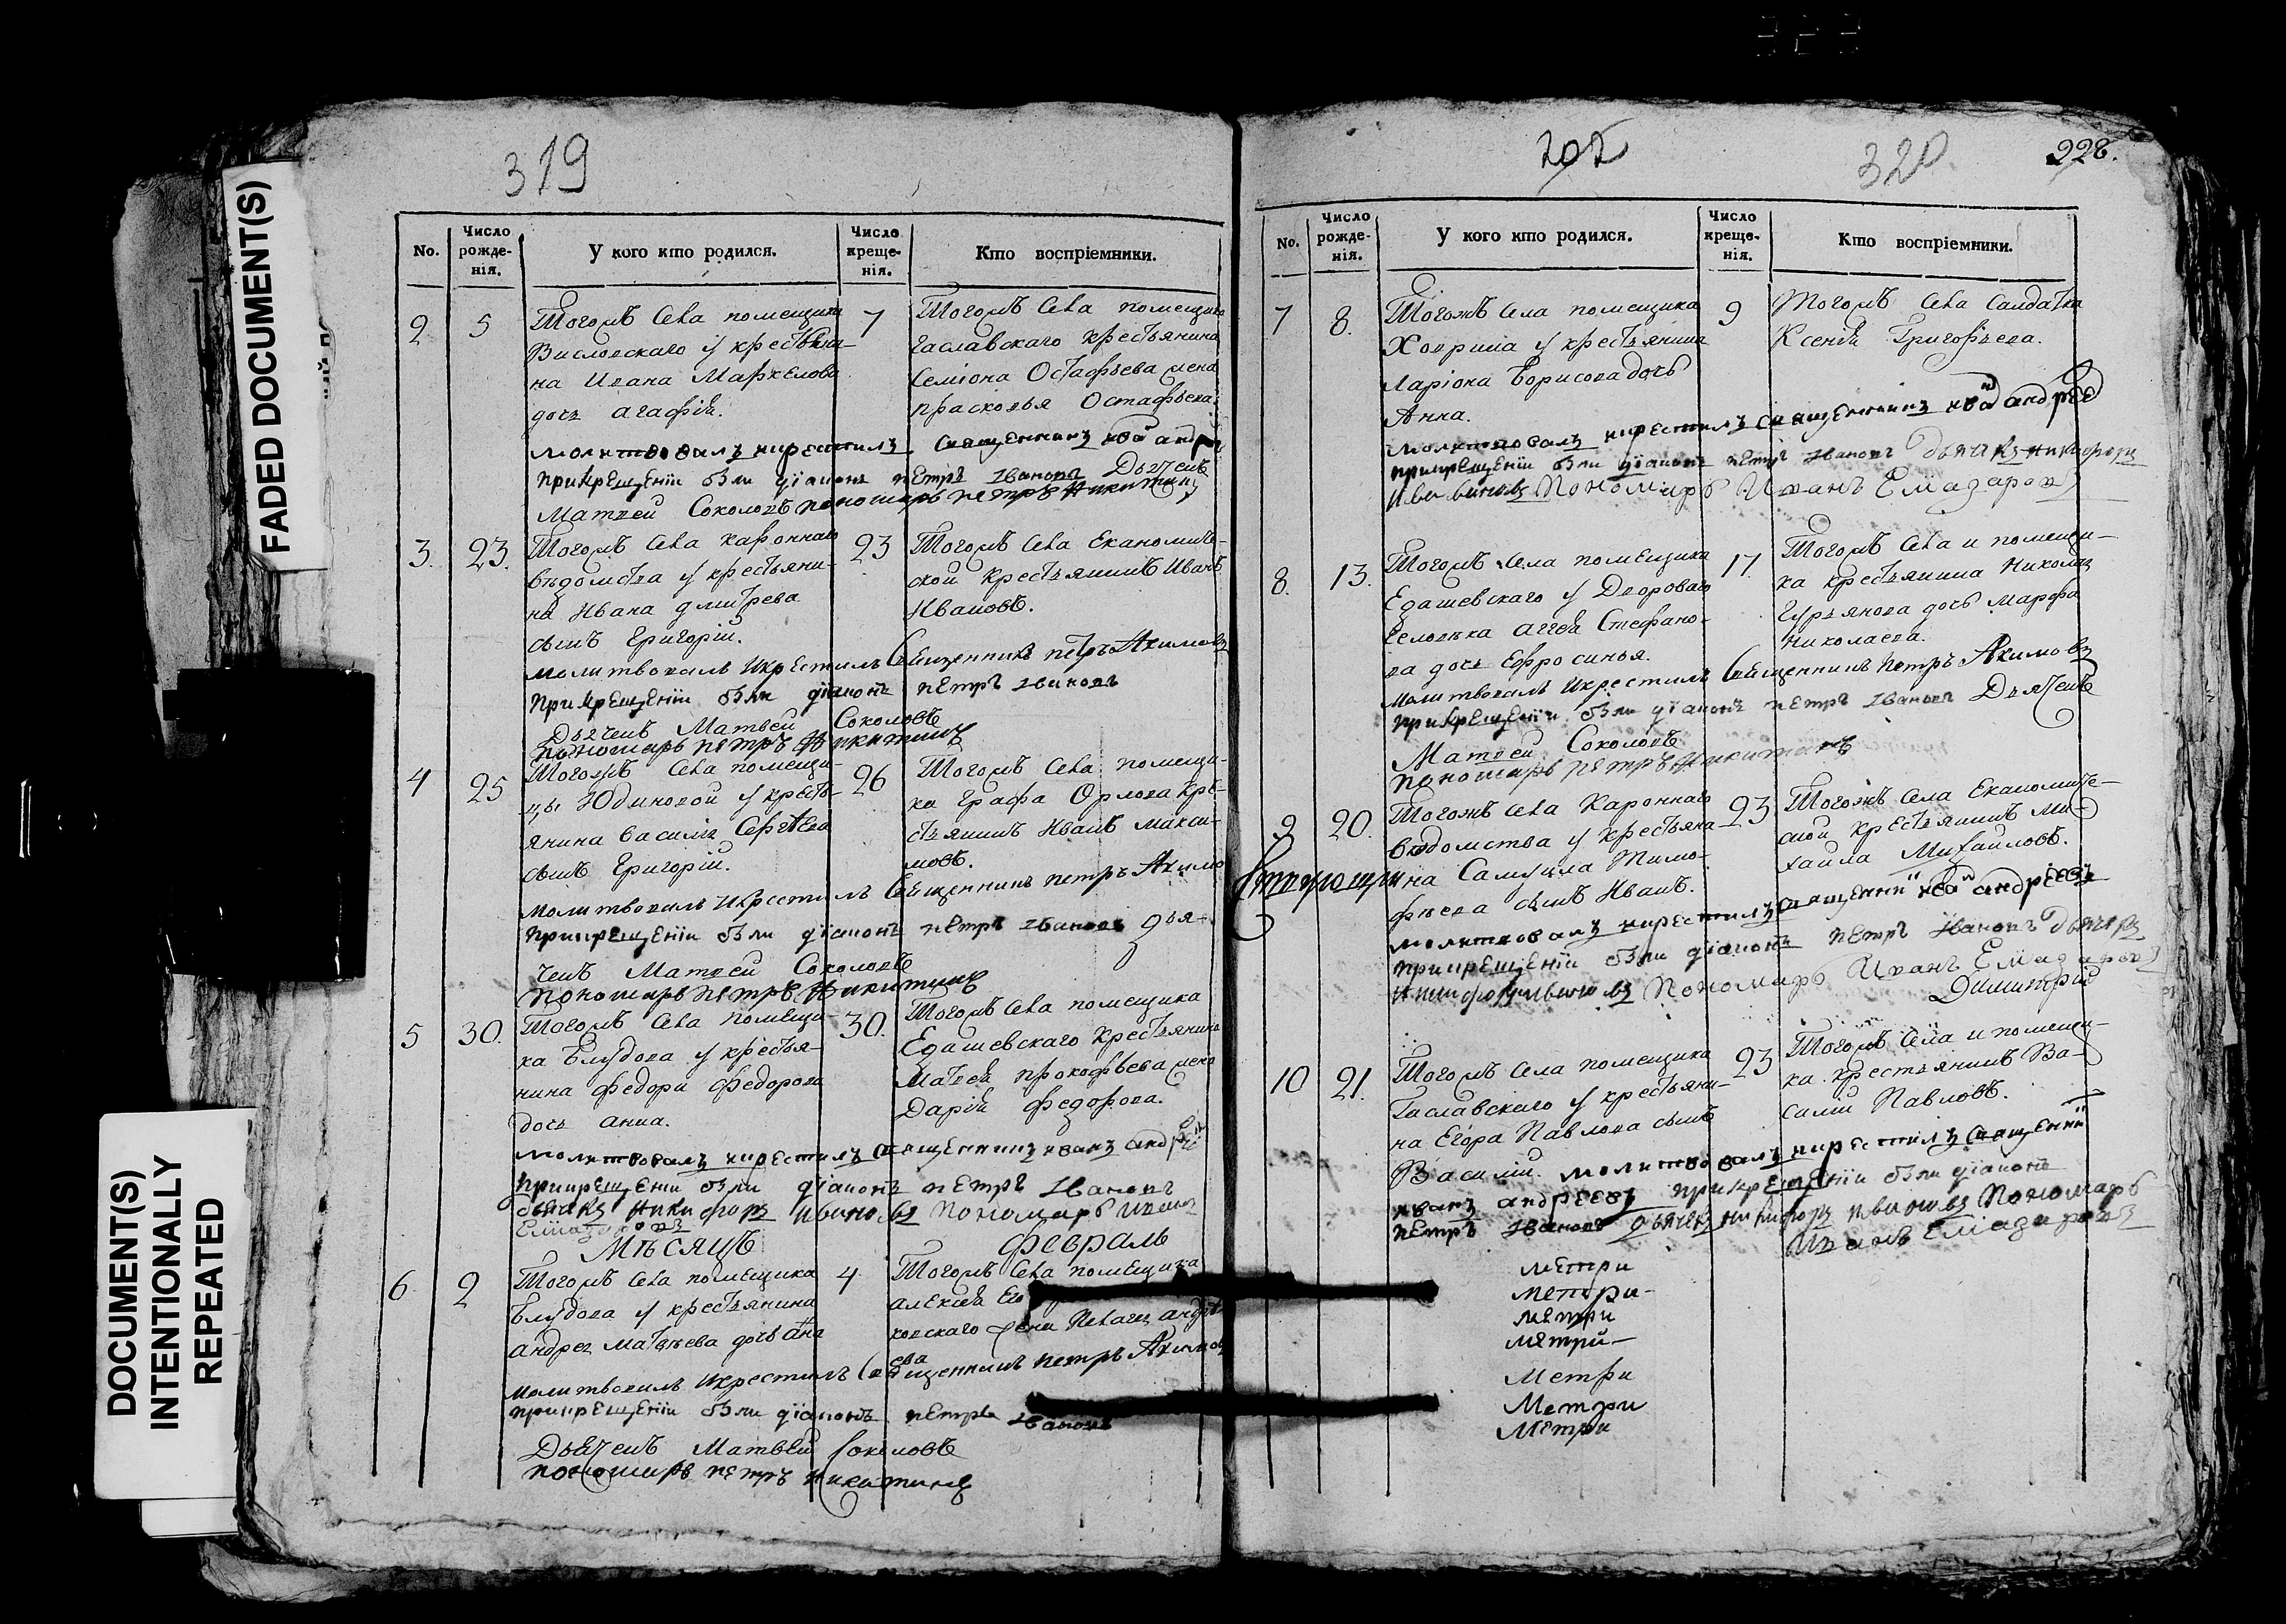 FADED DOCUMENT(S)
DOCUMENT(S)
INTENTIONALLY
REPEATED
319
No.
Число
рожде-
нія.
У кого кто родился.
Число
креще-
нія.
Кто воспріемники.
2
5
Тогожъ села помещика
Висловскаго у крестьяни-
на Ивана Маркелова
дочь агафия.
7
Тогожъ села помещика
гаславскаго крестьянина
Семіона Остафьева жена
прасковья Остафьева
молитвовалъ икрестилъ священникъ андрее
прикрещеніи были діаконъ петръ Ивановъ Дьячекъ
Матвей Соколовъ пономарь петръ Никитинъ
3.
23.
Тогожъ села кароннаго
ведомства у крестьяни-
на Ивана дмитрева
сынъ Григорій.
23
Тогожъ села Економиче-
ской крестьянинъ Иванъ
Ивановъ.
молитвовалъ икрестилъ Священникъ петръ Акимовъ
прикрещеніи были діаконъ петръ Ивановъ
Дьячекъ Матвей Соколовъ
пономарь петръ Никитинъ
4
25
Тогожъ села помещи-
цы Юдиновой у кресть-
янина василія Сергѣева
сынъ Григорій.
26
Тогожъ села помещи-
ка Графа Орлова кре-
стьянинъ Иванъ макси-
мовъ.
молитвовалъ икрестилъ Священникъ петръ Акимо
прикрещеніи были діаконъ петръ Ивановъ дья-
чекъ Матвей Соколовъ
пономарь петръ Никитинъ
5
30.
Тогожъ села помещи-
ка Блудова у кресть-
нина федора федорова
дочь анна.
30.
Тогожъ села помещика
Едашевскаго крестьянина
Матвея прокофьева жена
Дарія федорова.
молитвовалъ икрестилъ священникъ иванъ андрее
прикрещеніи были діаконъ петръ Ивановъ
дьячекъ Никифоръ Ивановъ Пономарь Иванъ
Елиазаровъ
Мѣсяцъ февраль
6
2
Тогожъ села помещика
Блудова у крестьянина
андрея Матвѣева дочь анна
4
Тогожъ села помещика
алексея
ковскаго жена Пелагея андре
ева
молитвовалъ икрестилъ Священникъ петръ Акимовъ
прикрещеніи были діаконъ петръ Ивановъ
Дьячекъ Матвей Соколовъ
пономарь петръ Никитинъ
202
320
228.
No.
Число
рожде-
нія.
У кого кто родился.
Число
креще-
нія.
Кто воспріемники.
7
8.
Тогожъ села помещика
Ховрина у крестьянина
Ларіона Борисова дочь
Анна.
9
Тогожъ села Салдатка
Ксения Григорьева.
молитвовалъ икрестилъ священникъ андрее
прикрещеніи были діаконъ петръ Ивановъ дьячекъ никифоръ
Ивановъ Пономарь Иванъ Елиазаровъ
8.
13.
Тогожъ села помещика
Едашевскаго у Дворова
человека аггея Стефано-
ва дочь Ефросинья.
17
Тогожъ села и помещи-
ка крестьянина Николы
Гурьянова дочь марфа
николаева.
молитвовалъ икрестилъ Священникъ петръ Акимовъ
прикрещеніи были діаконъ петръ Ивановъ Дьячекъ
Матвей Соколовъ
пономарь петръ Никитинъ
9
20.
Тогожъ села Кароннаго
ведомства у крестьяни-
на Самуила Тимо-
фѣева сынъ Иванъ.
23
Тогожъ села Економиче-
ской крестьянинъ Ми-
хайла Михайловъ.
молитвовалъ икрестилъ священникъ андреевъ
прикрещеніи были діаконъ петръ Ивановъ дьячекъ
никифоръ ивановъ Пономарь Иванъ Елиазаровъ
Димитрій
10
21.
Тогожъ села помещика
Гаславскаго у крестьяни-
на Егора Павлова сынъ
Василій.
23
Тогожъ села и помещи-
ка крестьянинъ Ва-
силий Павловъ.
молитвовалъ икрестилъ священни
иванъ андреевъ прикрещеніи были діаконъ
петръ Ивановъ дьячекъ никифоръ ивановъ Пономарь
Иванъ Елиазаровъ
метри
метри-
метри
метрй-
Метри
Метри
Метри